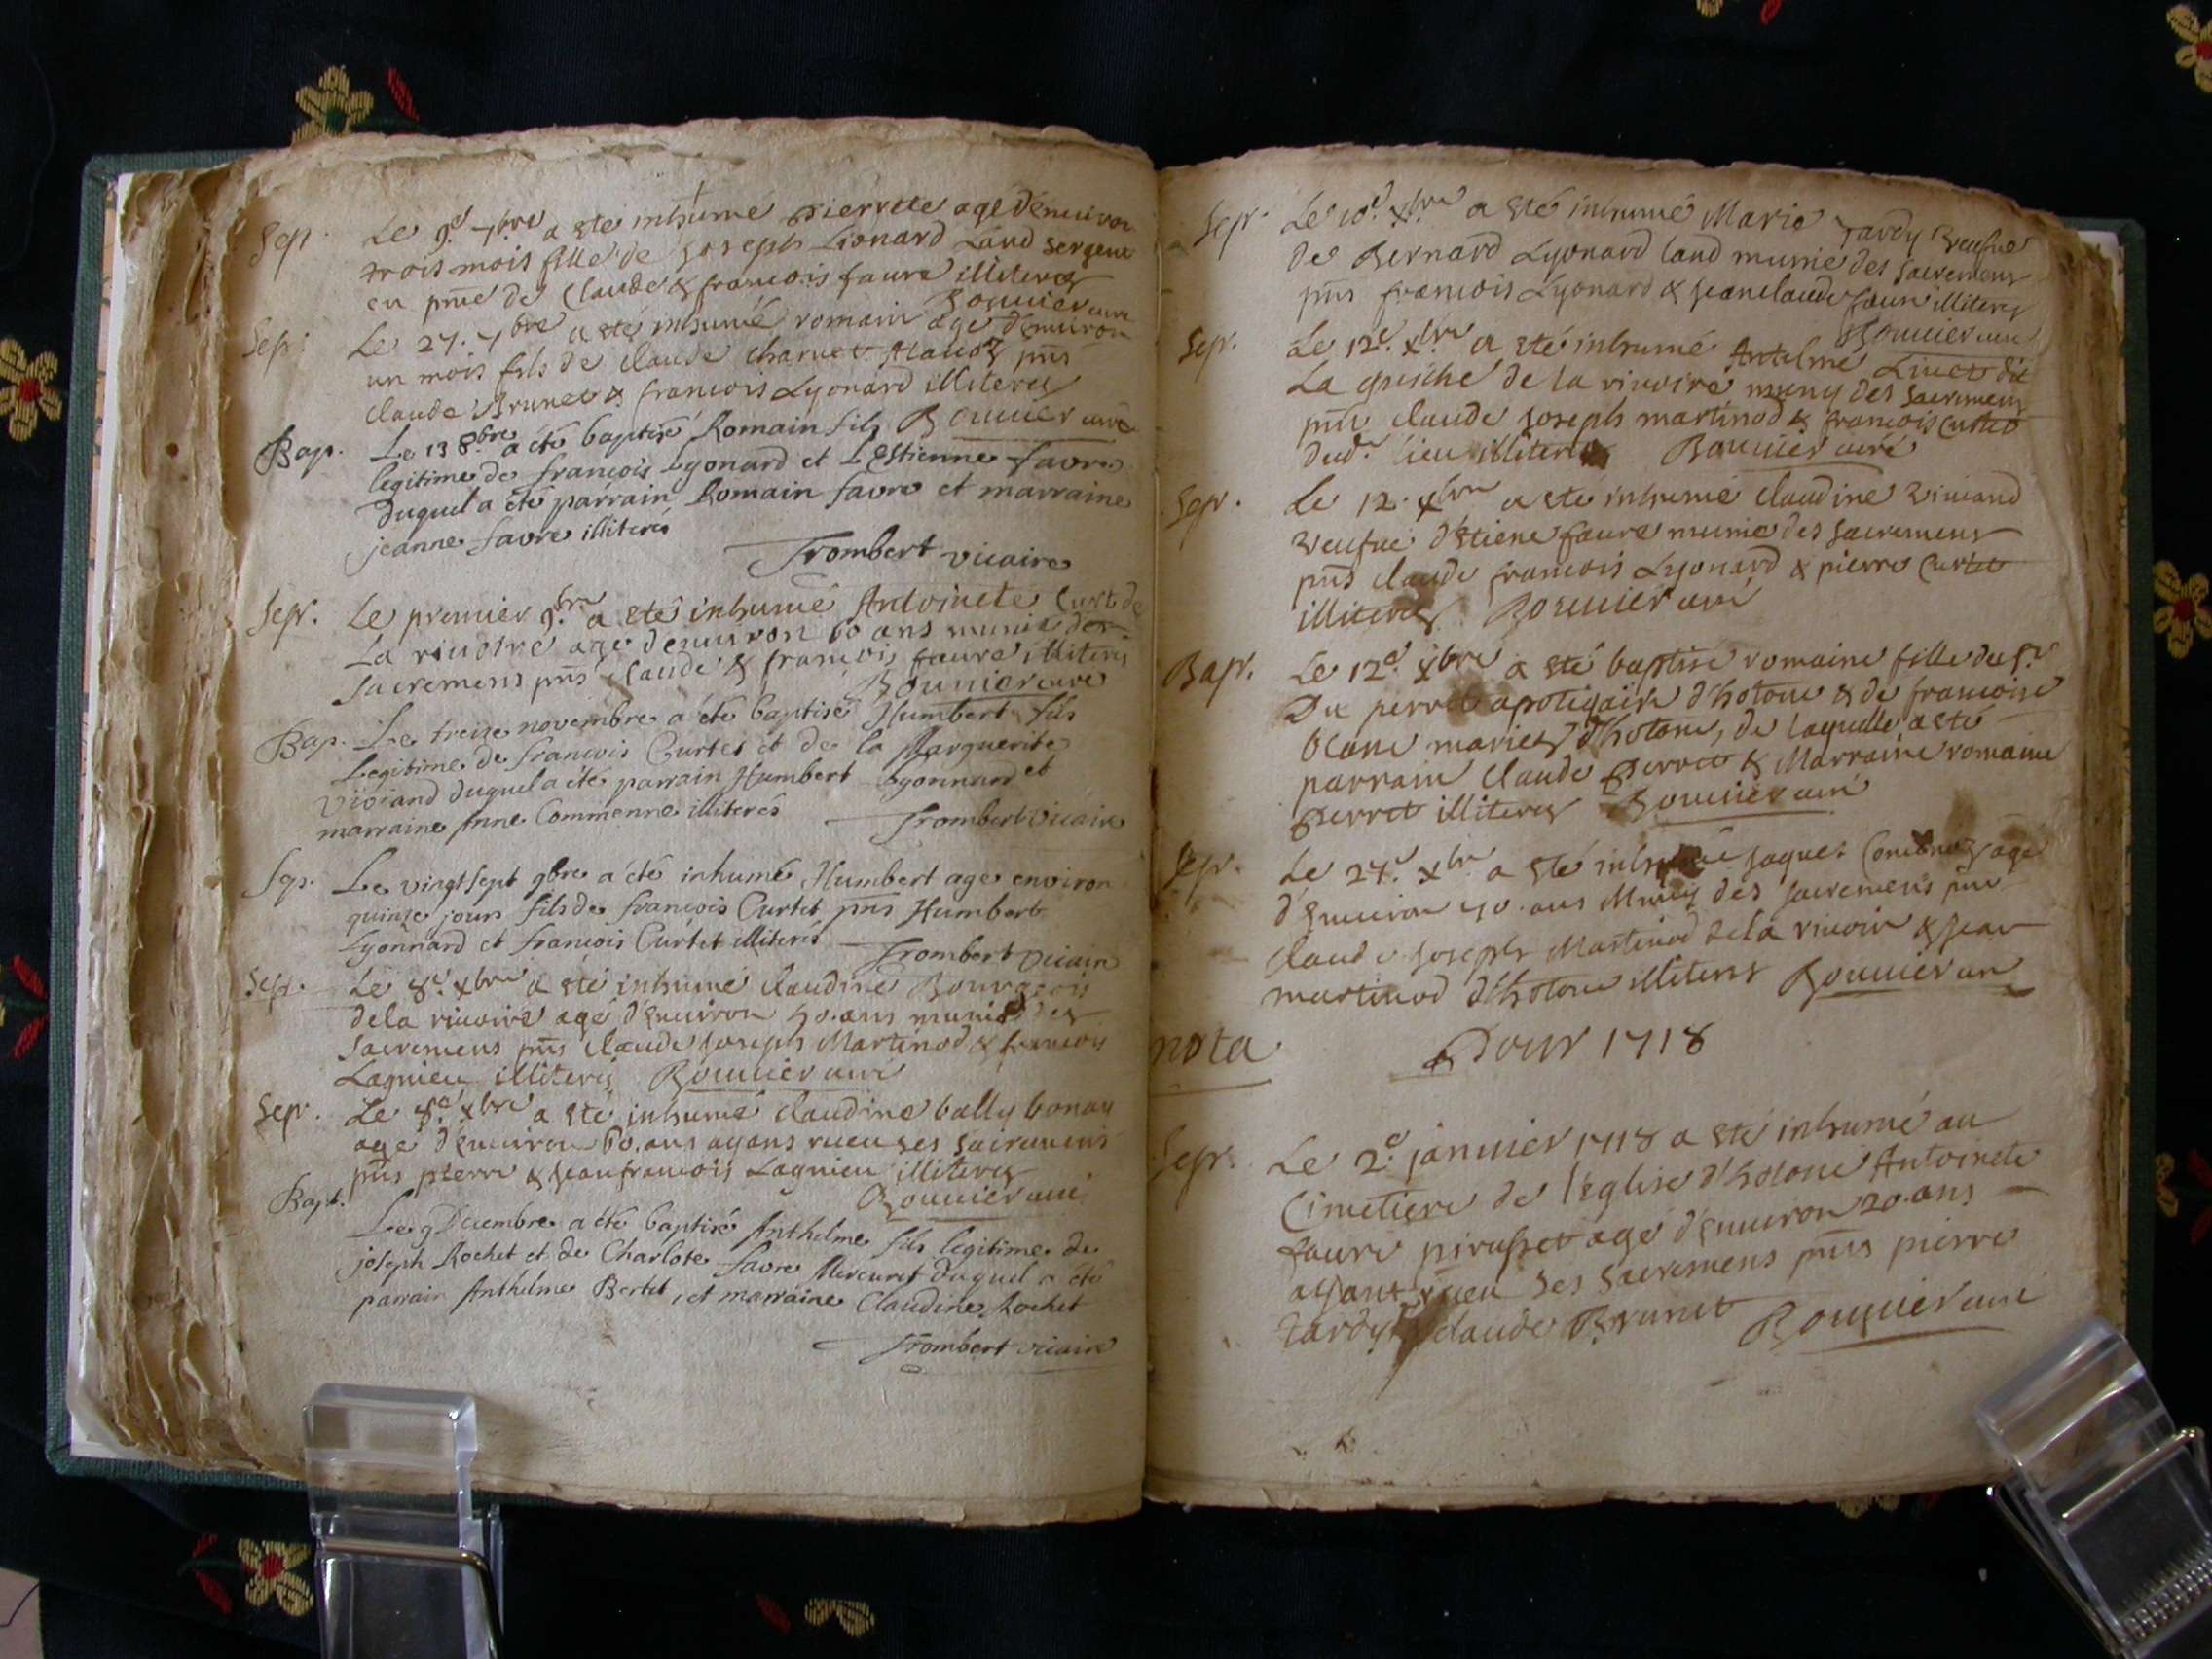 Sep. Le 9e 7bre a esté inhumé pierrette agé d'enuiron
trois mois fille de joseph Lionard Land sergent
en pnce de Claude & francois faure illiteres
Bouuier curé
Sep. Le 27. 7bre a esté inhumé romain agé d'enuiron
un mois fils de claude charuet pns
claude Brunet & francois Lyonard illiteres
Bouuier curé
Bap. Le 13 8bre a été baptisé Romain fils
legitime de francois Lyonard et L'Estienne favre
duquel a été parrain Romain favre et marraine
jeanne favre illiterés
Trombert vicaire
Sepr. Le premier 9bre a esté inhumé Antoinete Curt de
La riuoire agé d'enuiron 60 ans munie des
sacremens pns claude & francois faure illiteres
Bouuier curé
Bap. Le treize novembre a été baptisé Humbert fils
Legitime de francois Curtet et de la Marguerite
Viviand duquel a été parrain Humbert Lyonnard et
marraine Anne Commenne illiterés
Trombert vicaire
Sep. Le vingt sept 9bre a été inhumé Humbert age environ
quinze jours fils de francois Curtet pns Humbert
Lyonnard et francois Curtet illiterés
Trombert vicaire
Sepr. Le 8e xbre a esté inhumé claudine Bourgeois
de la riuoire agé d'enuiron 50. ans munie des
sacremens pns claude joseph Martinod & francois
Lagnieu illiteres Bouuier curé
Sepr. Le 8e xbre a esté inhumé claudine bally bonay
agé d'enuiron 60. ans ayans receu ses sacremens
pns pierre & jean francois Lagnieu illiteres
Bouuier curé
Bapt. Le 9 Decembre a été baptisé Anthelme fils legitime de
joseph Rochet et de Charlote favre Mercuret duquel a été
parrain Anthelme Bertet, et marraine Claudine Rochet
Trombert vicaire
Sepr. Le 10e. xbre a esté inhumé Marie Tardy veufue
de Bernard Lyonard land munie des sacremens
pns francois Lyonard & jean claude faure illiteres
Bouuier curé
Sepr. Le 12e. xbre a esté inhumé Antelme Liuet dit
La guiche de la riuoire muny des sacremens
pns claude joseph martinod & francois Curtet
dud. lieu illiteres Bouuier curé
Sepr. Le 12. xbre a esté inhumé claudine viuiand
veufue d'étiene faure munie des sacremens
pns claude francois Lyonard & pierre Curtet
illiteres Bouuier curé
Bapt. Le 12e. xbre a esté baptisé romaine fille du Sr
Du perret apotiquaire d'hotone & de francoise
mariés d'hotone, de laquelle a esté
parrain claude perret & Marraine romaine
perret illiteres Bouuier curé
Sepr. Le 27e. xbre a esté inhumé jaques agé
d'enuiron 40. ans Muny des sacremens pns
claude joseph Martinod de la riuoire & jean
martinod d'hotone illiteres Bouuier curé
nota Pour 1718
Sepr. Le 2e. januier 1718 a esté inhumé au
Cimetiere de l'eglise d'hotone Antoinete
faure pirasset agé d'enuiron 20. ans
ayant receu ses sacremens pns pierre
tardy & claude Brunet Bouuier curé